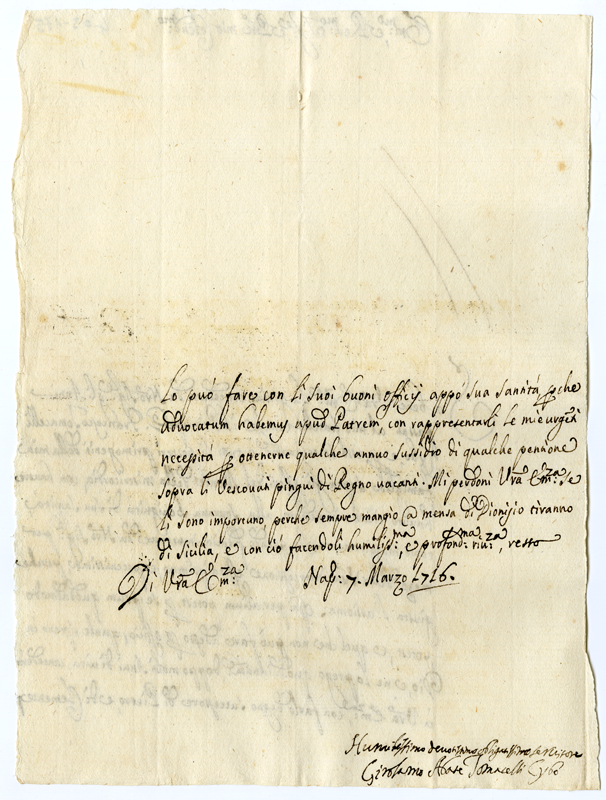 Lo può fare con li suoi buoni officij appò sua santità p che
advocatum habemus apud Patrem, con rappresentarli le mie urgẽti
necessità p ottenerne qualche annuo sussidio di qualche pensione
sopra li Vescovati pingui di Regno vacanti. Mi perdoni Vrã Em:za se
li sono importuno, perche sempre mangio @ mensa di Dionisio tiranno
di Sicilia, e con ciò facendoli humiliss:ma, e profond:ma riu:za, resto
Di Vrã Em:za Nap: 7. Marzo 1716.
Humilissimo devotissimo obligatissimo servitore
Girolamo Abate Tomacelli Cybò